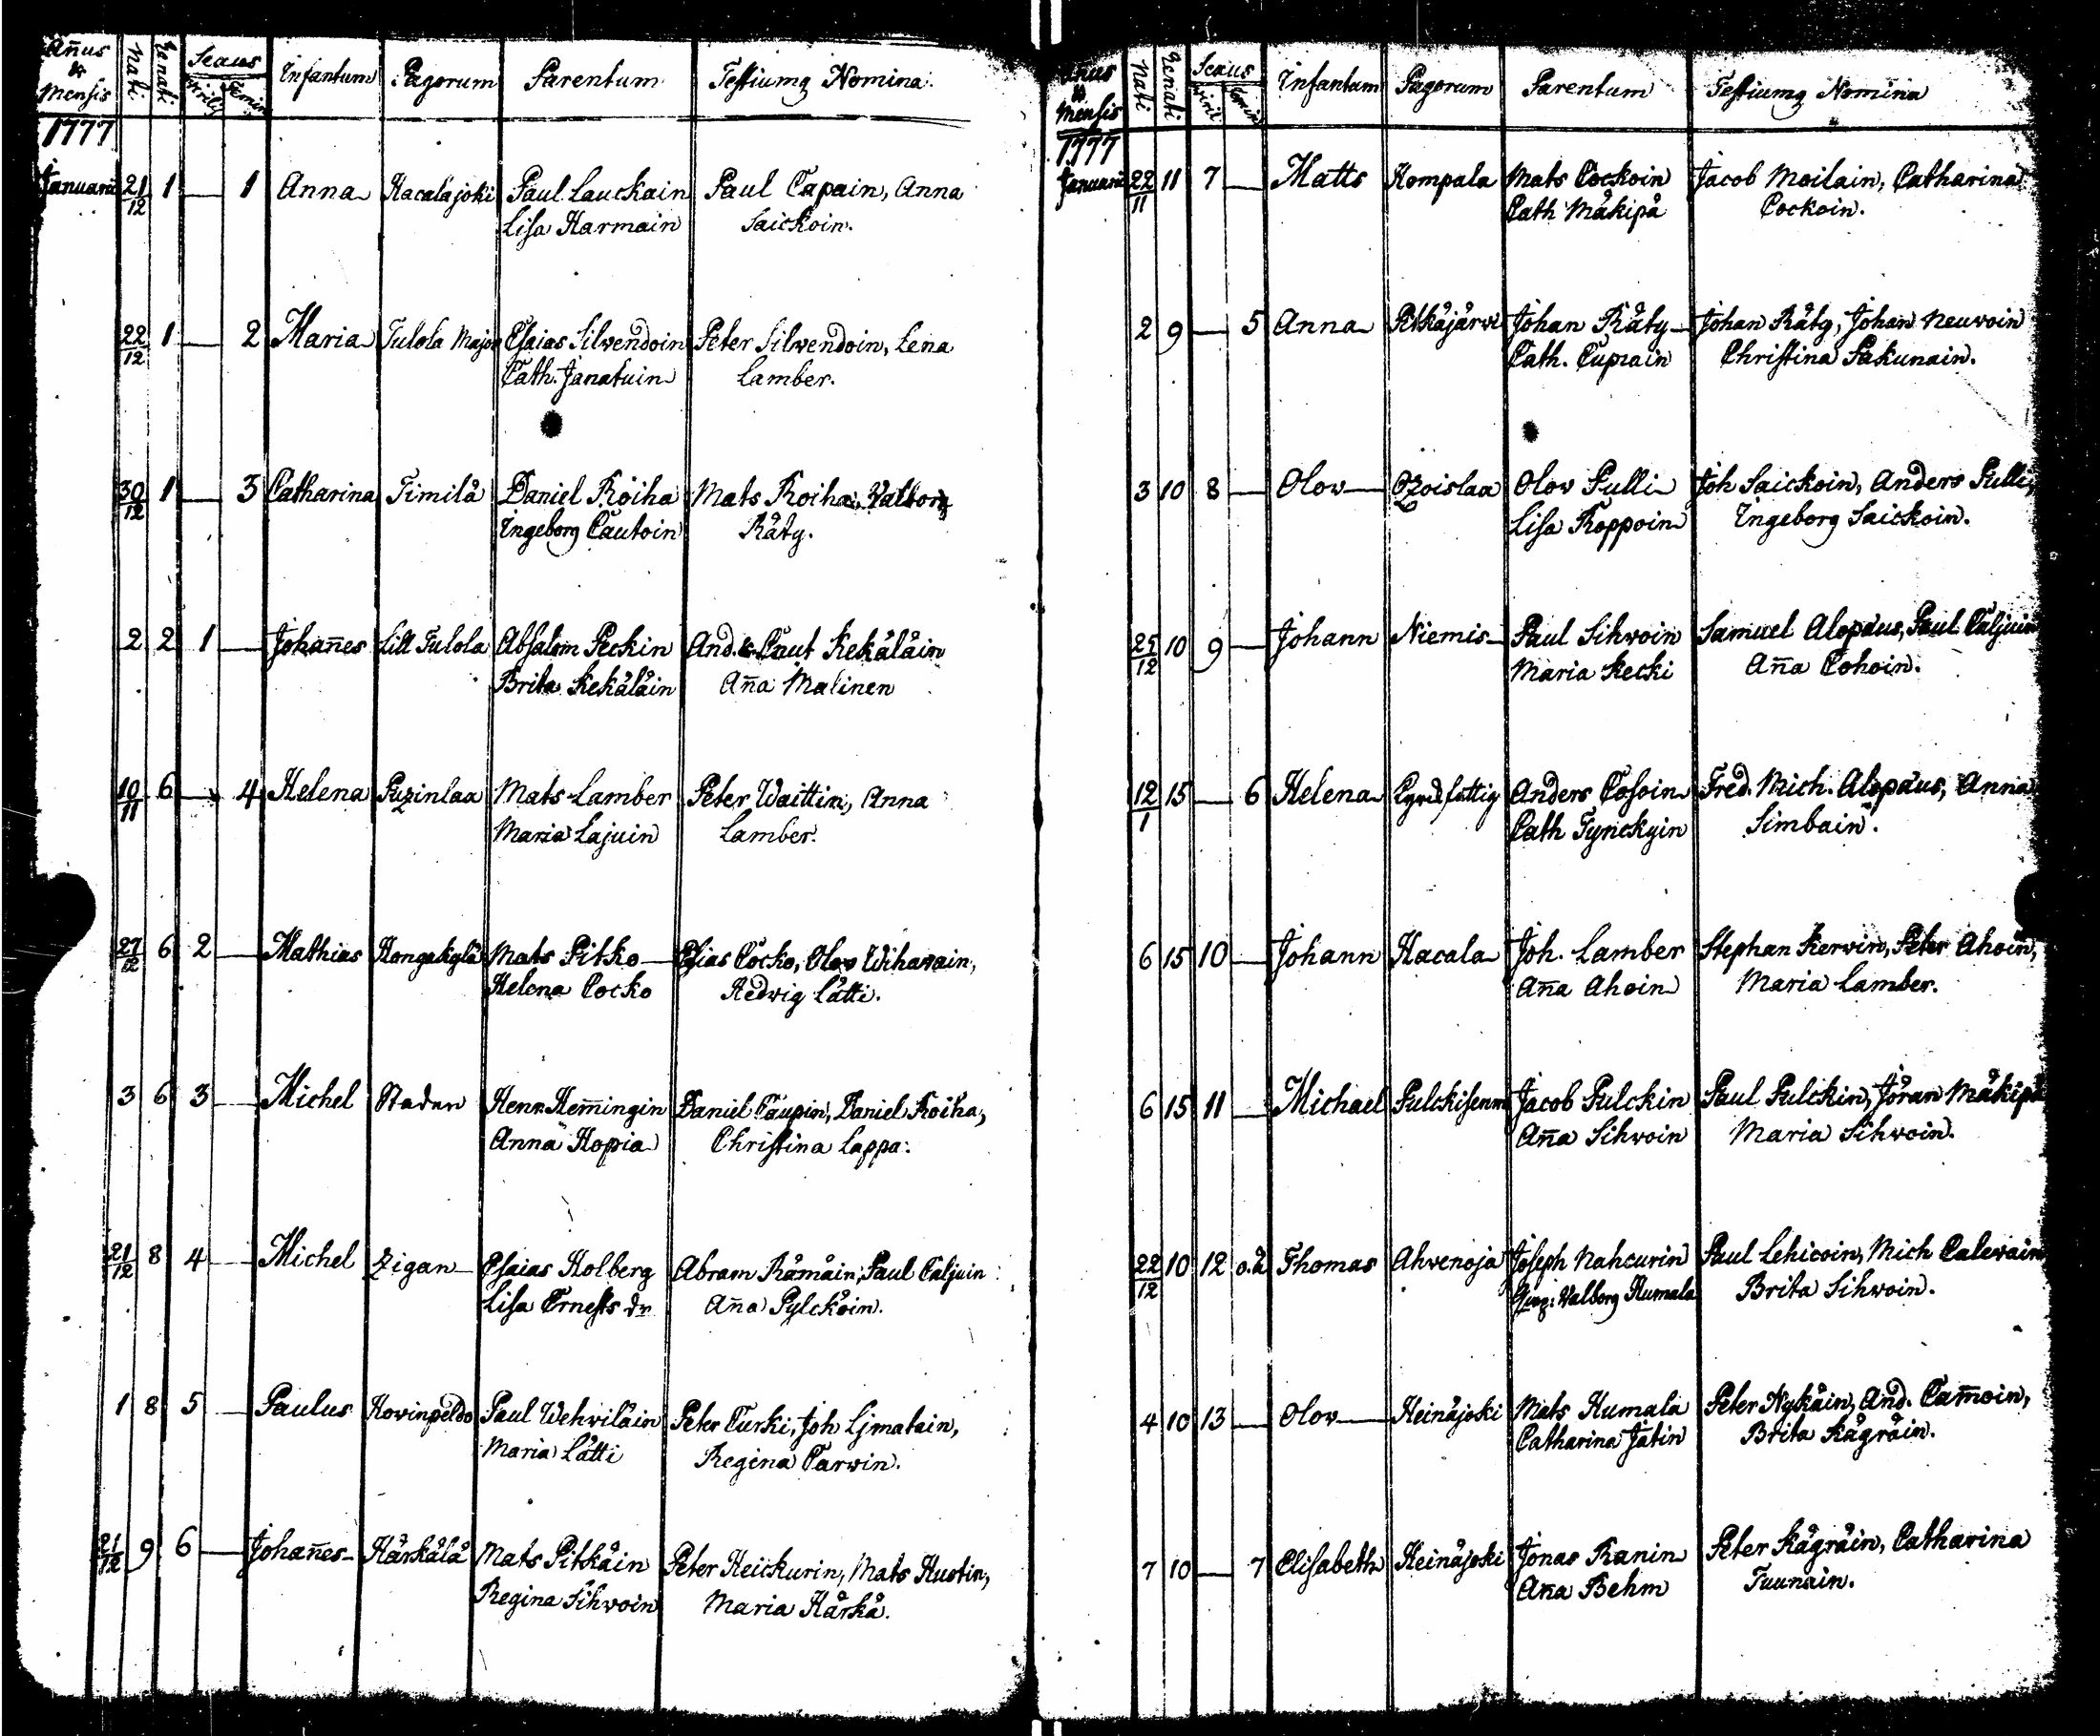 Añus & Mensis Nati Renati Sexus Virilis Femin Infantum Pagorum Parentum Testiumq Nomina.
1777
Januarii 21/12 1 — 1 Anna Hacalajoki Paul Lauckain Paul Capain, Anna
Lisa Harmain Saickoin.
22/12 1 — 2 Maria Tulola Major Esaias Silvendoin Peter Silvendoin, Lena
Cath. Janatuin Lamber.
30/12 1 — 3 Catharina Timilå Daniel Roiha Mats Roiha, Valborg
Ingeborg Cautoin Råty.
2 2 1 — Johañes Lill Tulola Absalom Peckin And. & Cnut Kekäläin
Brita Kekäläin Aña Malinen
10/11 6 — 4 Helena Puzinlaa Mats Lamber Peter Waittin, Anna
Maria Lajuin Lamber.
27/12 6 2 — Mathias Kangaskylä Mats Pitko Elias Cocko, Olov Wihavain,
Helena Cocko Hedvig Lätti.
3 6 3 — Michel Staden Henr. Hem̄ingin Daniel Caupin, Daniel Roiha,
Anna Hopia Christina Lappa.
21/12 8 4 — Michel Zigan Esaias Holberg Abram Rämäin, Paul Caljuin
Lisa Ernests dr Aña Pylckoin.
1 8 5 — Paulus Hovinpeldo Paul Wehviläin Peter Turki, Joh Ljmatain,
Maria Lätti Regina Carvin.
21/12 9 6 — Johañes Härkälä Mats Pitkäin Peter Heickurin, Mats Hustin,
Regina Sihvoin Maria Härkä.
Añus & Mensis Nati Renati Sexus Viril Femin Infantum Pagorum Parentum Testiumq Nomina
1777
Januarii 22/11 11 7 — Matts Kompala Mats Cockoin Jacob Moilain, Catharina
Cath Mäkipä Cockoin.
2 9 — 5 Anna Pitkäjärvi Johan Räty Johan Räty, Johan Neuvoin
Cath. Cupiain Christina Pakunain.
3 10 8 — Olov Ozoislaa Olov Pulli Joh Saickoin, Anders Pulli,
Lisa Roppoin Ingeborg Saickoin.
25/12 10 9 — Johann Niemis Paul Sihvoin Samuel Alopäus, Paul Caljuin
Maria Kecki Aña Cohoin.
12/1 15 — 6 Helena Kyrckfattig Anders Cosoin Fred. Mich. Alopäus, Anna
Cath Tynckyin Simbain.
6 15 10 — Johann Hacala Joh. Lamber Stephan Kervin, Peter Ahoin,
Aña Ahoin Maria Lamber.
6 15 11 — Michael Pulckisenm Jacob Pulckin Paul Pulckin, Jöran Mäkipä
Aña Sihvoin Maria Sihvoin.
22/12 10 12 o.ä Thomas Ahvenoja Joseph Nahcurin Paul Lehicoin, Mich Calevain
Valborg Humala Brita Sihvoin.
4 10 13 — Olov Heinäjoki Mats Humala Peter Nykäin, And. Cam̄oin,
Catharina Jatin Brita Kägräin.
7 10 — 7 Elisabeth Heinäjoki Jonas Ranin Peter Kägräin, Catharina
Aña Behm Tuunain.